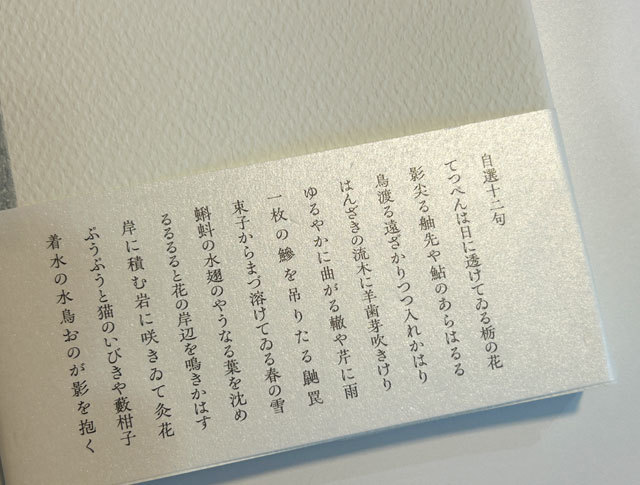 自選十二句
てつぺんは日に透けてゐる栃の花
影尖る舳先や鮎のあらはるる
鳥渡る遠ざかりつつ入れかはり
はんざきの流木に羊歯芽吹きけり
ゆるやかに曲がる轍や芹に雨
一枚の鰺を吊りたる鼬罠
束子からまづ溶けてゐる春の雪
蝌蚪の水翅のやうなる葉を沈め
るるるると花の岸辺を鳴きかはす
岸に積む岩に咲きゐて灸花
ぶうぶうと猫のいびきや藪柑子
着水の水鳥おのが影を抱く